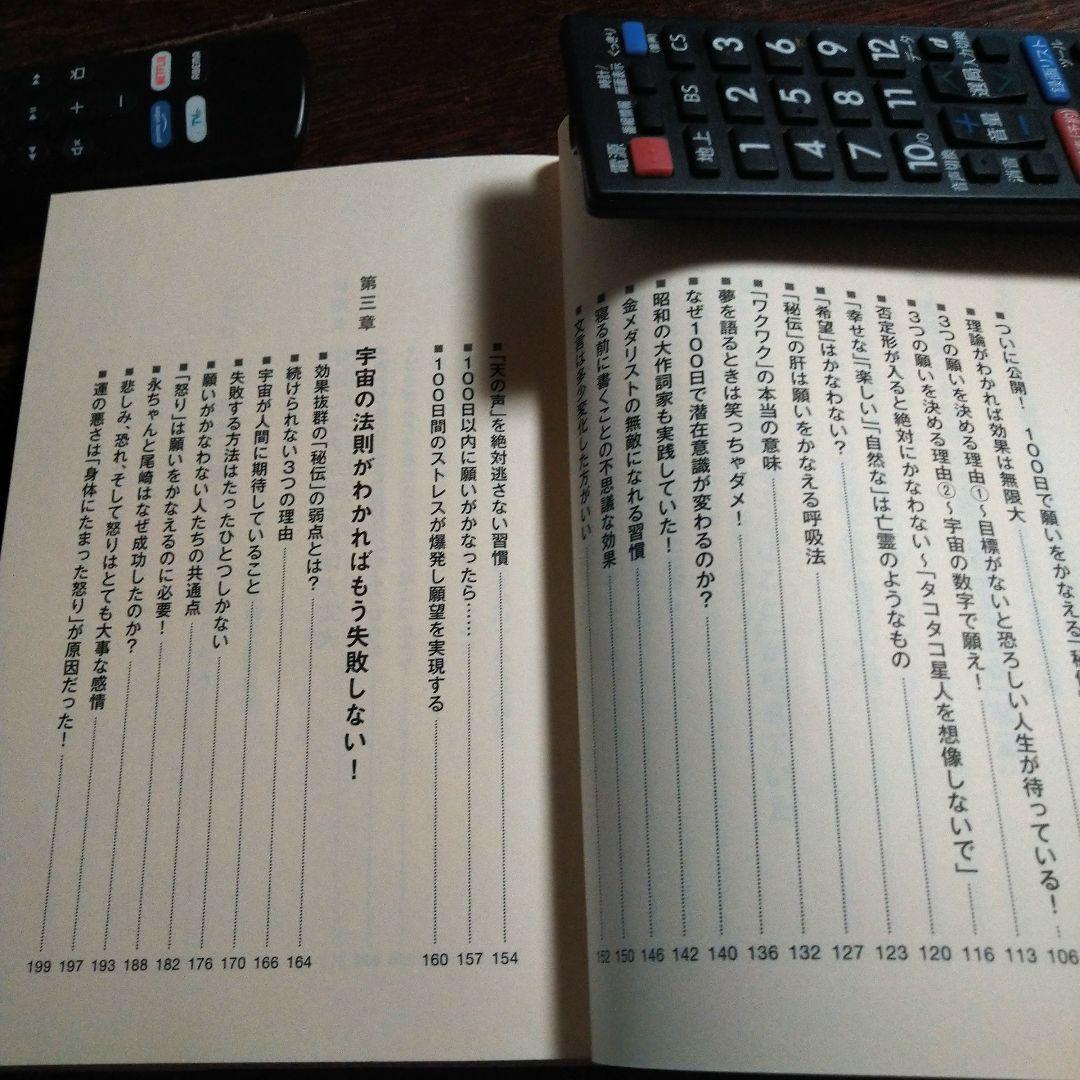 NETFLIX
prime video
ABEMA
くっきり
CS
3
6
9
12
データ
d
入力切換
録画リスト
ツール
時計/
画面表示
選局
BS
2
5
8
11
番組情報
音量
電源
地上
1
4
7
10/0
音声切換
消音
■ついに公開! 100日で願いをかなえる「秘伝
■理論がわかれば効果は無限大
■3つの願いを決める理由①〜目標がないと恐ろしい人生が待っている! 106
■3つの願いを決める理由②〜宇宙の数字で願え! 113
■否定形が入ると絶対にかなわない〜「タコタコ星人を想像しないで」 116
■「幸せな」「楽しい」「自然な」は亡霊のようなもの 120
■「希望」はかなわない? 123
■「秘伝」の肝は願いをかなえる呼吸法 127
■「ワクワク」の本当の意味 132
■夢を語るときは笑っちゃダメ! 136
■なぜ100日で潜在意識が変わるのか? 140
■昭和の大作詞家も実践していた! 142
■金メダリストの無敵になれる習慣 146
■寝る前に書くことの不思議な効果 150
■文言は多少変化した方がいい 152
■「天の声」を絶対逃さない習慣 154
■100日以内に願いがかなったら…… 157
■100日間のストレスが爆発し願望を実現する 160
第三章 宇宙の法則がわかればもう失敗しない!
■効果抜群の「秘伝」の弱点とは? 164
■続けられない3つの理由 166
■宇宙が人間に期待していること 170
■失敗する方法はたったひとつしかない 176
■願いがかなわない人たちの共通点 182
■「怒り」は願いをかなえるのに必要! 188
■永ちゃんと尾崎はなぜ成功したのか? 193
■悲しみ、恐れ、そして怒りはとても大事な感情 197
■運の悪さは「身体にたまった怒り」が原因だった! 199